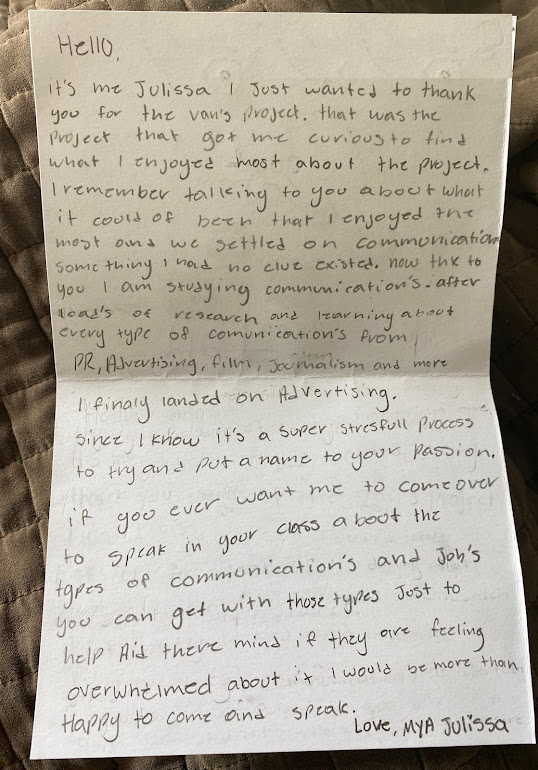 Hello,
it's me Julissa I Just wanted to thank
you for the van's project. that was the
Project that got me curious to find
what I enjoyed most about the project.
I remember talking to you about what
it could of been that I enjoyed the
most and we settled on communication
something I had no clue existed. now thk to
you I am studying communication's. after
load's of research and learning about
every type of comunication's from
PR, Advertising, film, Journalism and more
I finaly landed on Advertising.
Since I know it's a super stresfull process
to try and put a name to your passion.
if you ever want me to come over
to speak in your class about the
types of communication's and Job's
you can get with those types Just to
help Aid there mind if they are feeling
overwhelmed about it I would be more than
Happy to come and speak.
Love, MYA Julissa